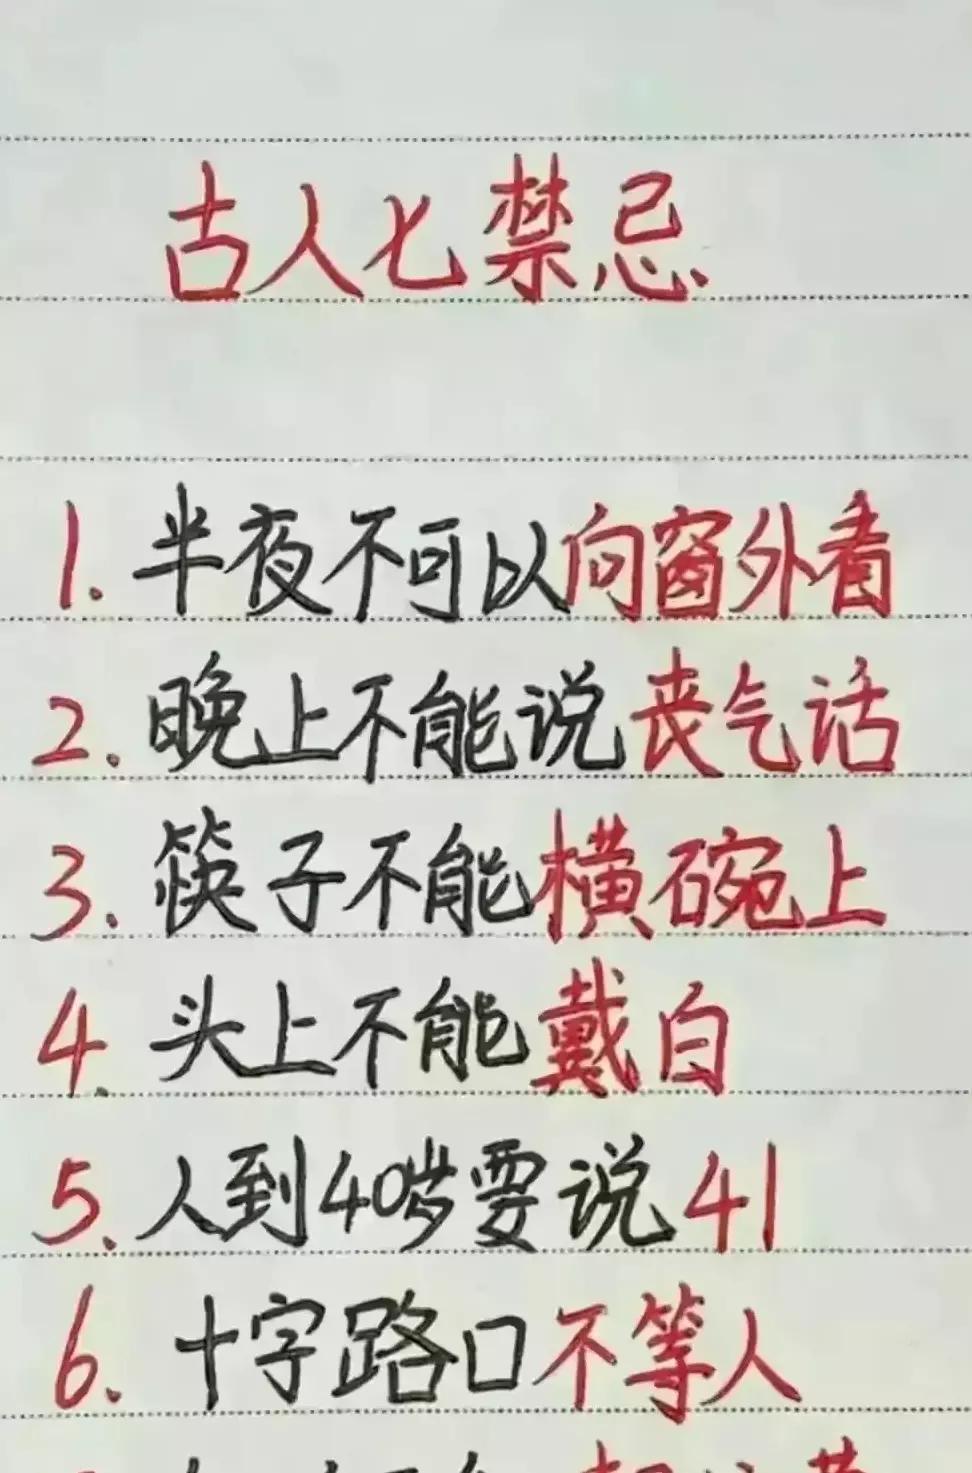 古人七禁忌
1. 半夜不可以向窗外看
2. 晚上不能说丧气话
3. 筷子不能横碗上
4. 头上不能戴白
5. 人到40岁要说41
6. 十字路口不等人